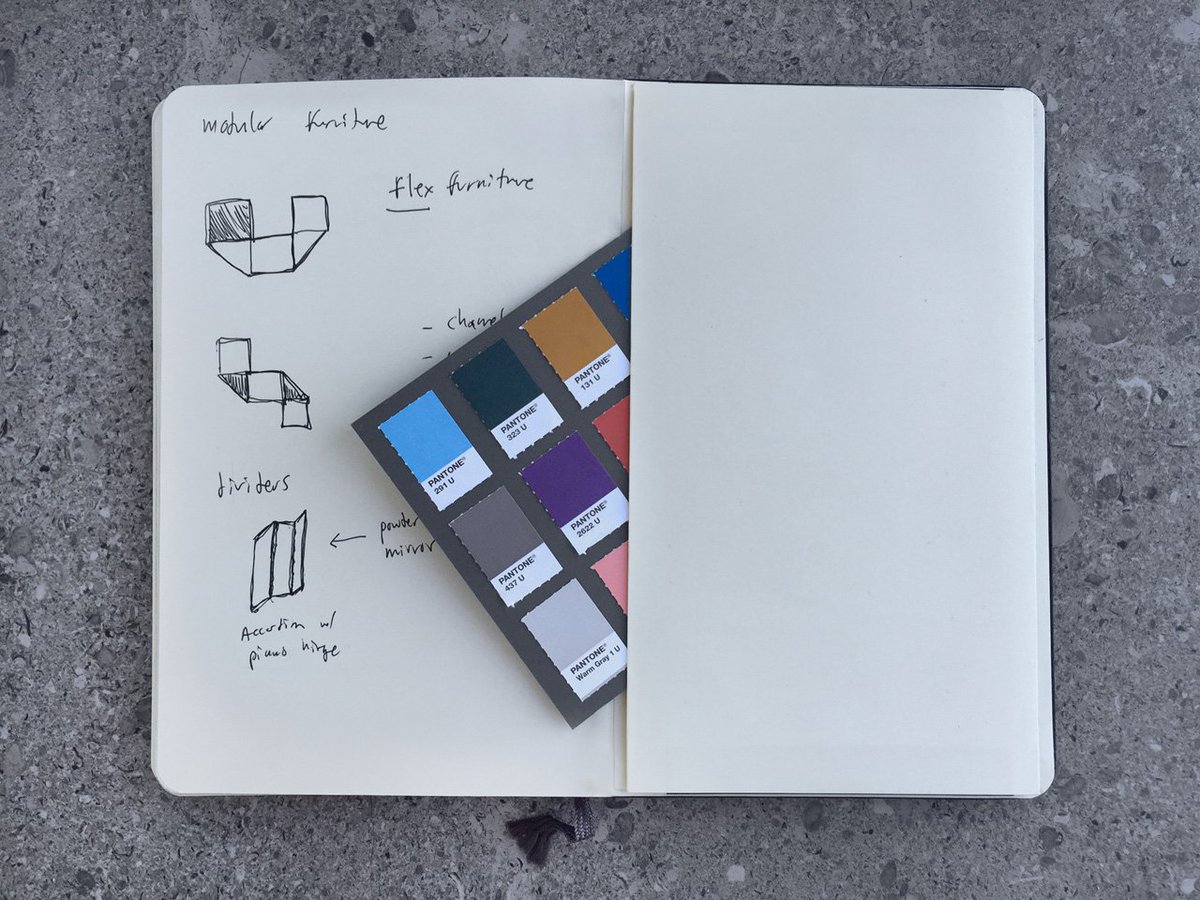 modular furniture
flex furniture
- chanel
-
dividers
powder
mirror
Accordion w/
piano hinge
PANTONE®
131 U
PANTONE®
323 U
PANTONE®
291 U
PANTONE®
2622 U
PANTONE®
437 U
PANTONE®
Warm Gray 1 U